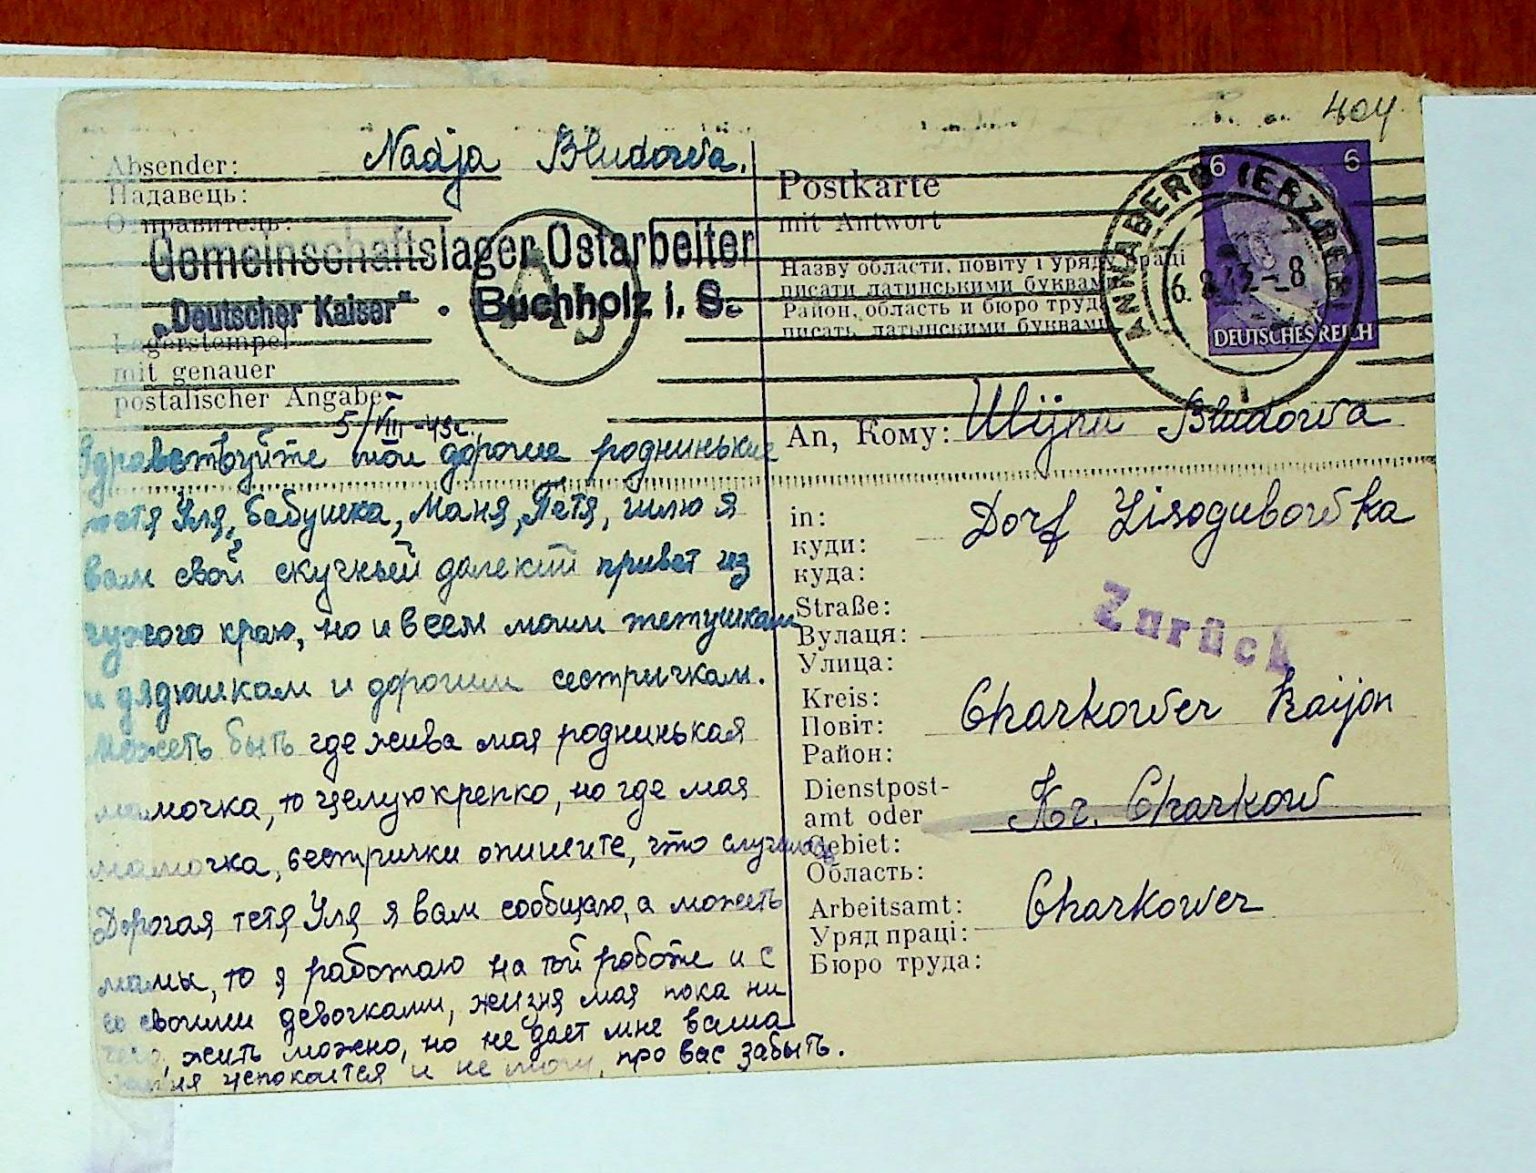 404
Absender:
Nadja Bludowa.
Надавець:
Отправитель:
Gemeinschaftslager Ostarbeiter
„Deutscher Kaiser“ • Buchholz i. S.
Lagerstempel
mit genauer
postalischer Angabe
5/VIII-43г.
Здравствуйте мои дорогие роднинькие
тетя Уля, бабушка, Маня, Петя, шлю я
вам свой скучный далекий привет из
чужого краю, но и всем моим тетушкам
и дядюшкам и дорогим сестричкам.
Можеть быть где жива мая роднинькая
мамочка, то целую крепко, но где мая
мамочка, сестрички опишите, что случилось
Дорогая тетя Уля я вам сообщаю, а можеть
мамы, то я работаю на той роботе и с
со своими девочками, жизня мая пока ни
чего, жить можно, но не дает мне ваша
жизня успокоится и не могу, про вас забыть.
Postkarte
mit Antwort
Назву области, повіту і уряду праці
писати латинськими буквами
Район, область и бюро труда
писать латынскими буквами
ANNABERG (ERZGEB)
6.8.43-8
6 6
DEUTSCHES REICH
An, Кому: Ulijnu Bludowa
in:
куди:
куда:
Dorf Lisogubowka
Straße:
Вулаця:
Улица:
Zurück
Kreis:
Повіт:
Район:
Charkower Raijon
Dienstpost-
amt oder
Gebiet:
Область:
Kr. Charkow
Arbeitsamt:
Уряд праці:
Бюро труда:
Charkower